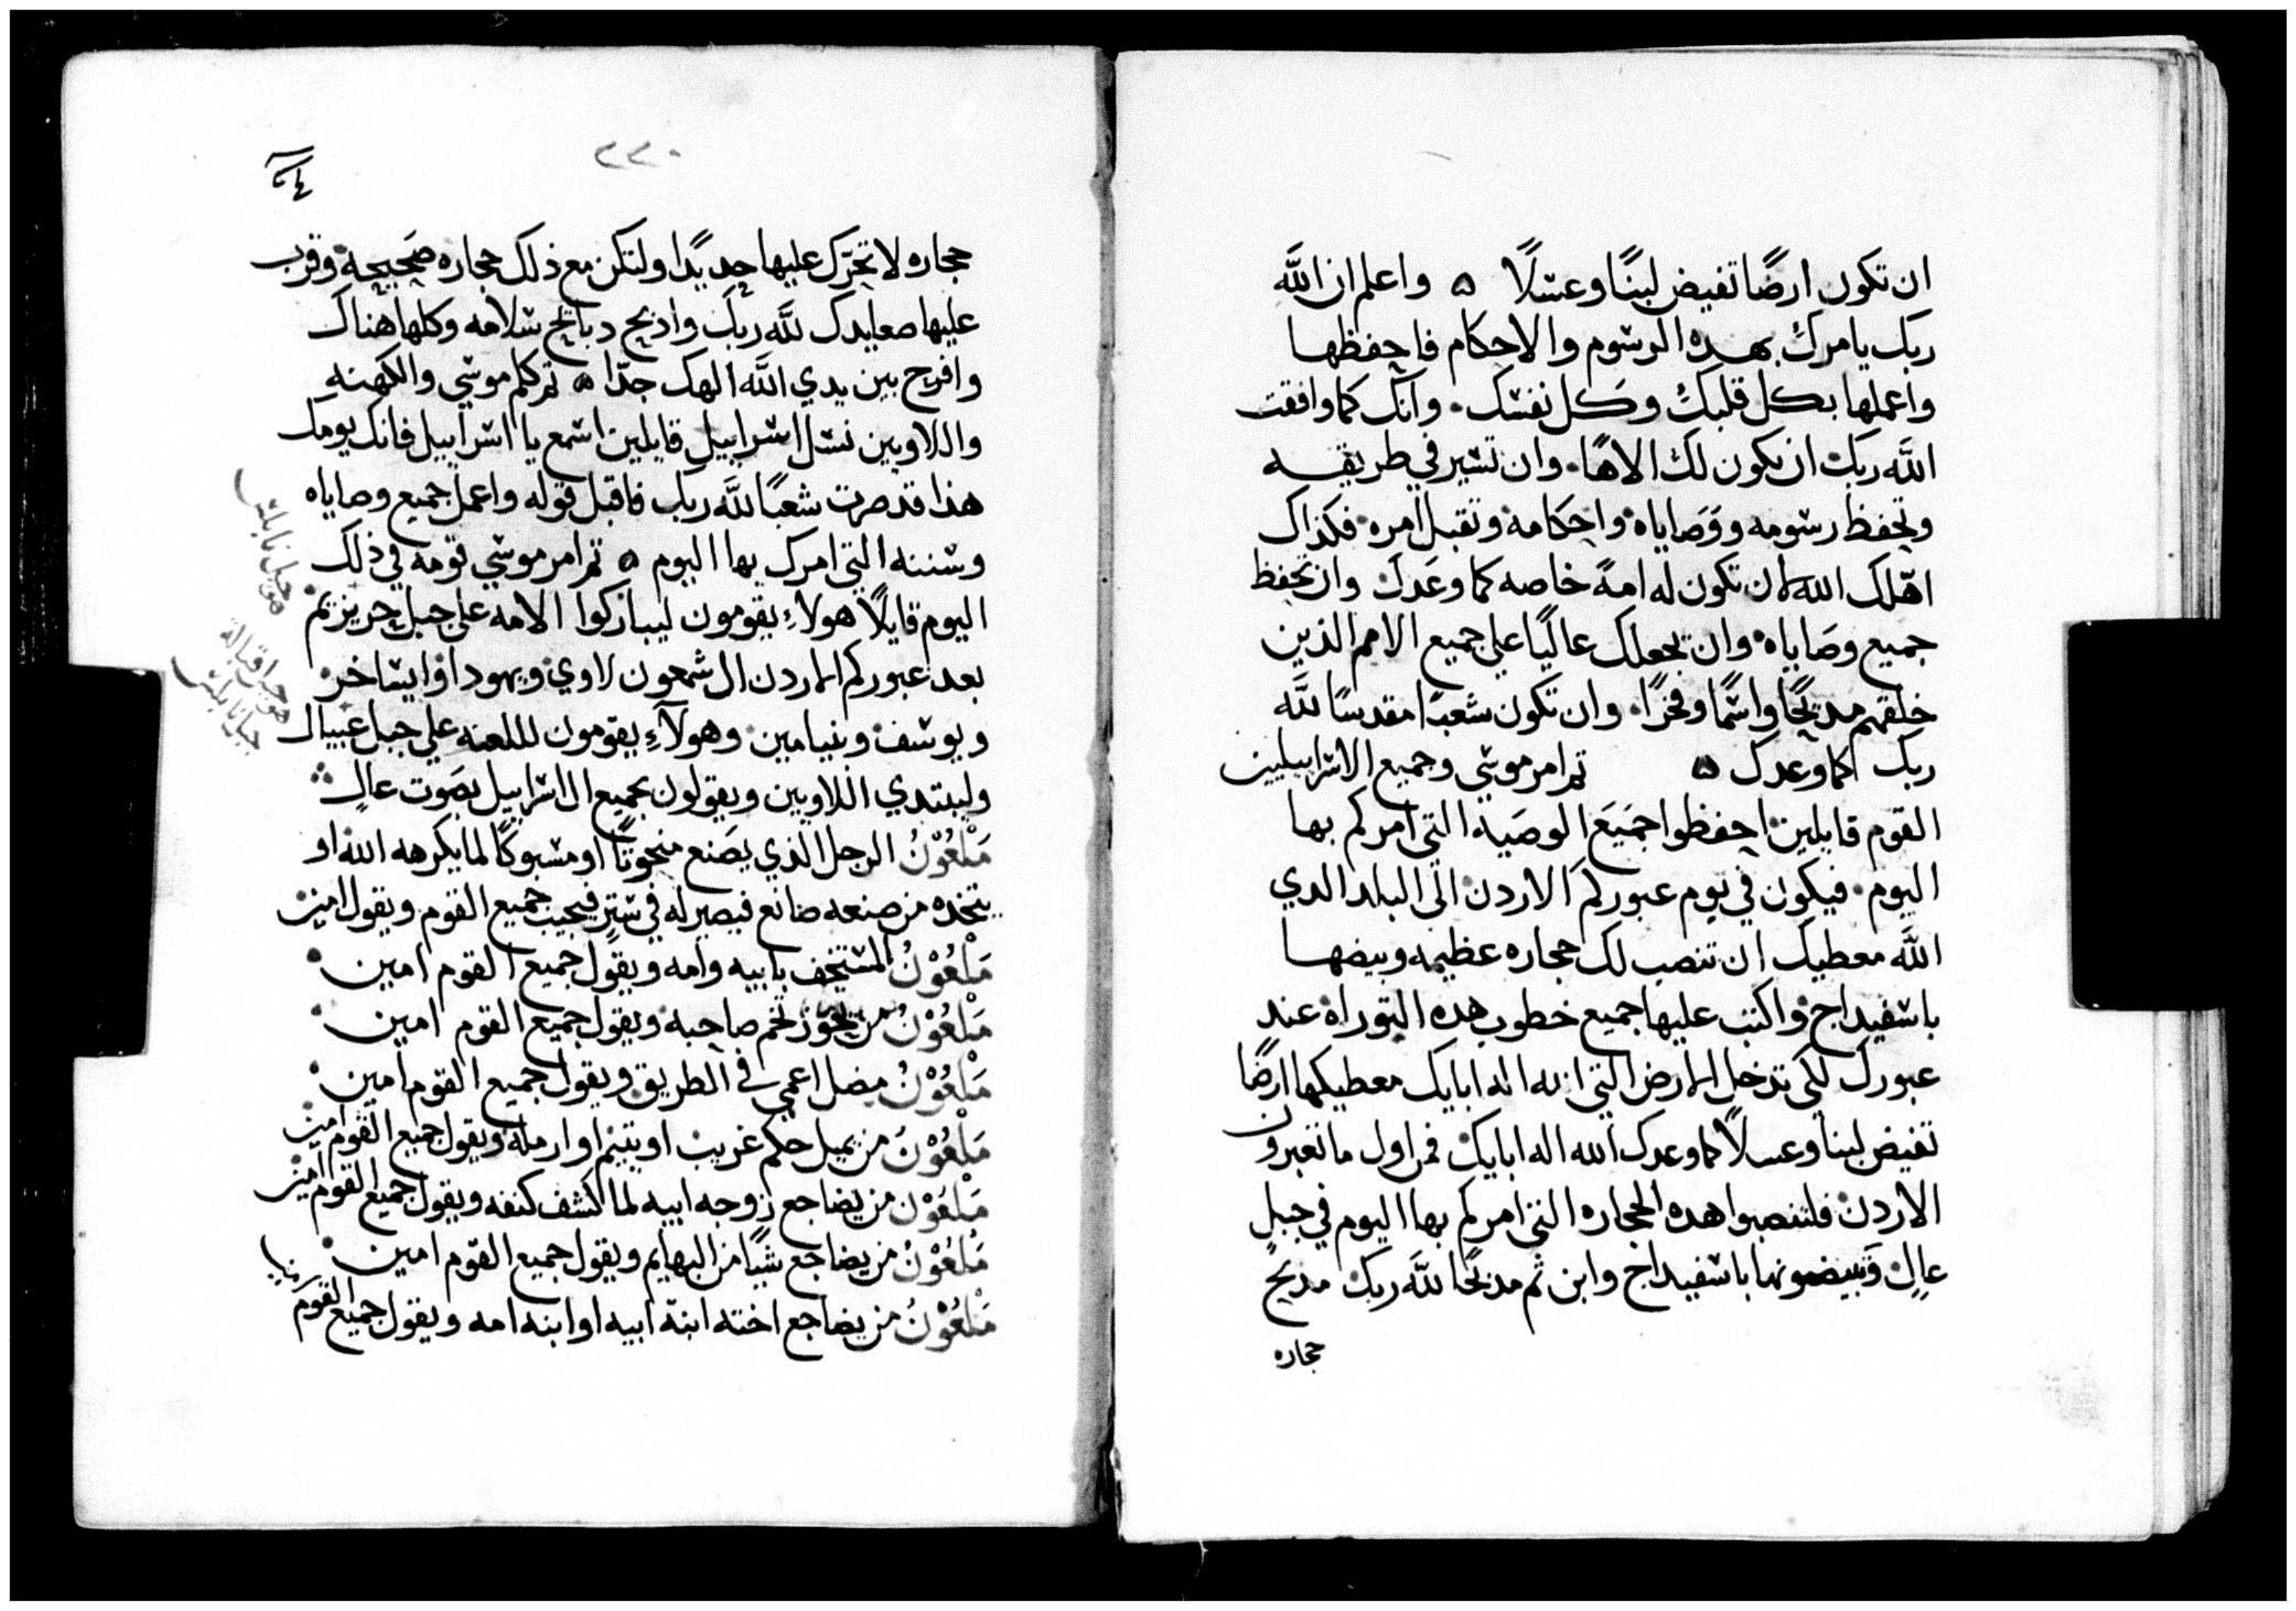 ان تكون ارضًا تفيض لبنًا وعسلًا ۵ واعلم ان الله
ربك يامرك بهده الرسوم والاحكام فاحفظها
واعملها بكل قلبك وكل نفسك. وانك كما وافقت
الله ربك ان يكون لك الاهًا. وان تسير في طريقه
وتحفظ رسومه ووصاياه واحكامه وتقبل امره. فكذاك
اهّلك الله لان تكون له امةً خاصه كما وعدك وان تحفظ
جميع وصاياه. وان يجعلك عاليًا على جميع الامم الذين
خلقهم مديحًا واسمًا وفخرًا. وان تكون شعبًا مقدسًا لله
ربك كما وعدك ۵ ثم امر موسي وجميع الاسراييليين
القوم قايلين احفظوا جميع الوصيه التي امركم بها
اليوم. فيكون في يوم عبوركم الاردن الى البلد الدي
الله معطيك ان تنصب لك حجاره عظيمه وبيضها
باسفيداج واكتب عليها جميع خطوب هده التوراة عند
عبورك لكي تدخل الارض التي الله اله ابايك معطيكها ارضًا
تفيض لبنا وعسلًا كما وعدك الله اله ابايك فمن اول ما تعبرون
الاردن فلتنصبوا هده الحجاره التي امركم بها اليوم في جبل
عال وتبيضونها باسفيداج وابن ثم مدبحًا لله ربك مدبح
حجاره
٢٢٠
حجاره لا تحرّك عليها حديدًا ولتكن مع ذلك حجاره صحيحة وقرب
عليها صعايدك لله ربك وادبح دبايح سلامه وكلها هناك
وافرح بين يدي الله الهك جدّا ۵ ثم كلم موسي والكهنه
واللاويين نسل اسراييل قايلين اسمع يا اسراييل فانك يومك
هذا قد صرت شعبًا لله ربك فاقبل قوله واعمل جميع وصاياه
وسننه التي امرك بها اليوم ۵ ثم امر موسي قومه في ذلك
اليوم قايلًا هولاء يقومون ليباركوا الامه على جبل جريزيم
هو جبل نابلس
بعد عبوركم الاردن ال شمعون لاوي ويهودا وايساخر
ويوسف وبنيامين وهولاء يقومون لللعنه علي جبل عيبال
هو جبل قبالة
جبل نابلس
وليبتدي اللاويين ويقولون بجميع ال اسراييل بصوت عال
مَلْعُوْنُ الرجل الذي يصنع منحوتًا او مسبوكًا لما يكرهه الله او
يتخده من صنعه صانع فيصيرله في ستر فيجيب جميع القوم ويقول امين
مَلْعُوْنُ المستخف بابيه وامه ويقول جميع القوم امين
مَلْعُوْنُ من يحوّز تخم صاحبه ويقول جميع القوم امين
مَلْعُوْنُ مضل اعمي في الطريق ويقول جميع القوم امين
مَلْعُوْنُ من يميل حكم غريب او يتيم او ارمله ويقول جميع القوم امين
مَلْعُوْنُ من يضاجع زوجه ابيه لما كشف كنفه ويقول جميع القوم امين
مَلْعُوْنُ من يضاجع شيًا من البهايم ويقول جميع القوم امين
مَلْعُوْنُ من يضاجع اخته ابنة ابيه او ابنه امه ويقول جميع القوم امين